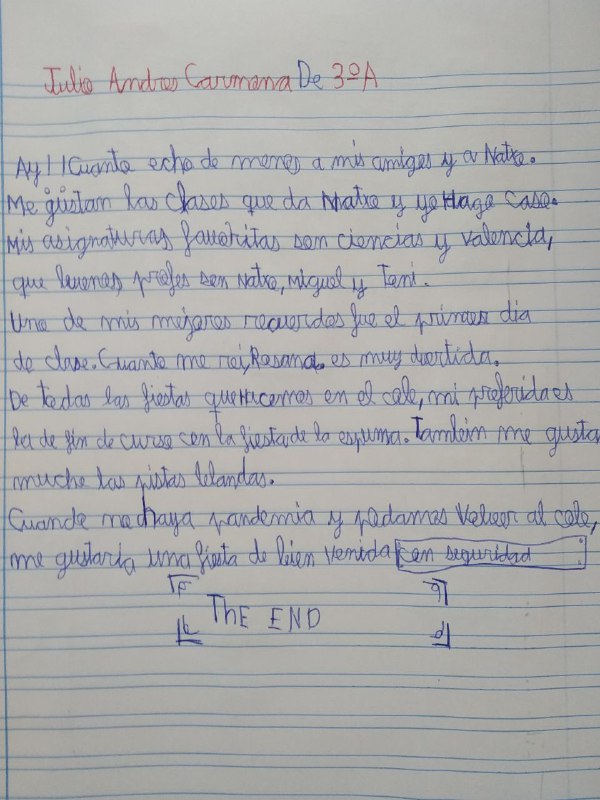 Julio Andres Carmona De 3ºA
Ay!! Cuanto echo de menos a mis amigos y a Natxo.
Me gustan las clases que da Natxo y yo Hago caso.
Mis asignaturas favoritas son ciencias y valencia,
que buenos profes son Natxo, Miguel y Toni.
Uno de mis mejores recuerdos fue el primer dia
de clase. Cuanto me rei, Rosana es muy divertida.
De todas las fiestas que Hacemos en el cole, mi preferida es
la de fin de curso con la fiesta de la espuma. Tambein me gusta
mucho las pistas blandas.
Cuando no haya pandemia y podamos Volver al cole,
me gustaria una fiesta de bien venida con seguridad
THE END